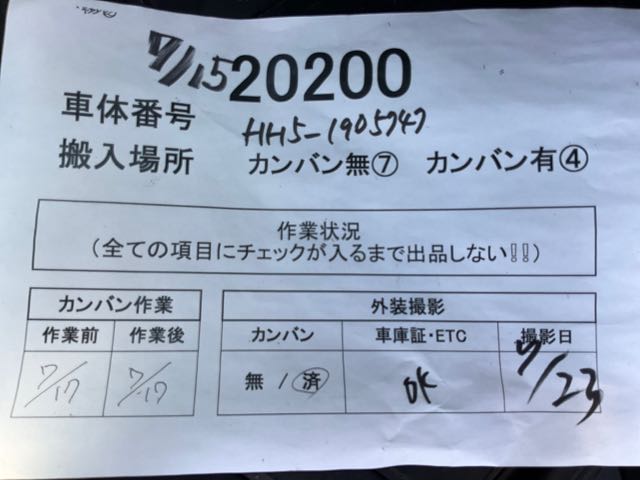 7/15 20200
車体番号 HH5-1905747
搬入場所 カンバン無⑦ カンバン有④
作業状況
(全ての項目にチェックが入るまで出品しない!!)
カンバン作業 外装撮影
作業前 作業後 カンバン 車庫証・ETC 撮影日
7/17 7/17 無 / 済 OK 7/23